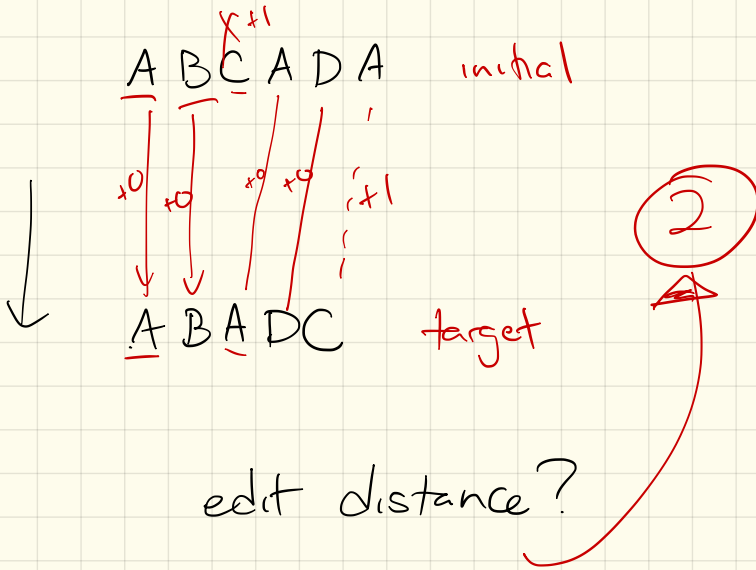 x +1
A B C A D A initial
+0 +0 +0 +0 +1
2
A B A D C target
edit distance?